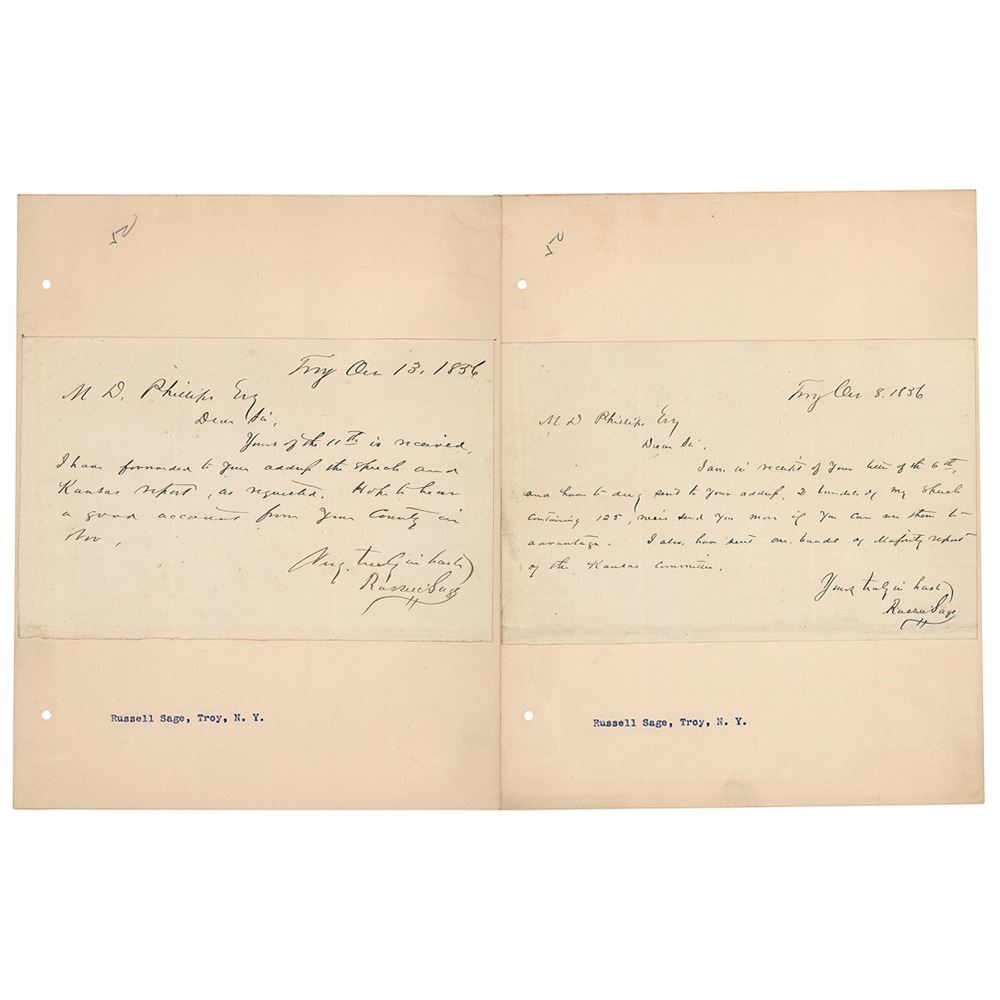 50
Troy Oct 13, 1856
M D. Phillips Esq
Dear Sir,
Yours of the 11th is received,
I have forwarded to your address the Speech and
Kansas report, as requested. Hope to hear
a good account from your County in
Nov,
Very truly in haste
Russell Sage
Russell Sage, Troy, N. Y.
50
Troy Oct 8. 1856
M D Phillips Esq
Dear Sir.
I am in receipt of your letter of the 6th,
and have to day sent to your address, 2 bundles of my Speech
containing 125, send you more if you can use them to
advantage. I also, have sent one bundle of Majority report
of the Kansas Committee.
Yours truly in haste
Russell Sage
Russell Sage, Troy, N. Y.